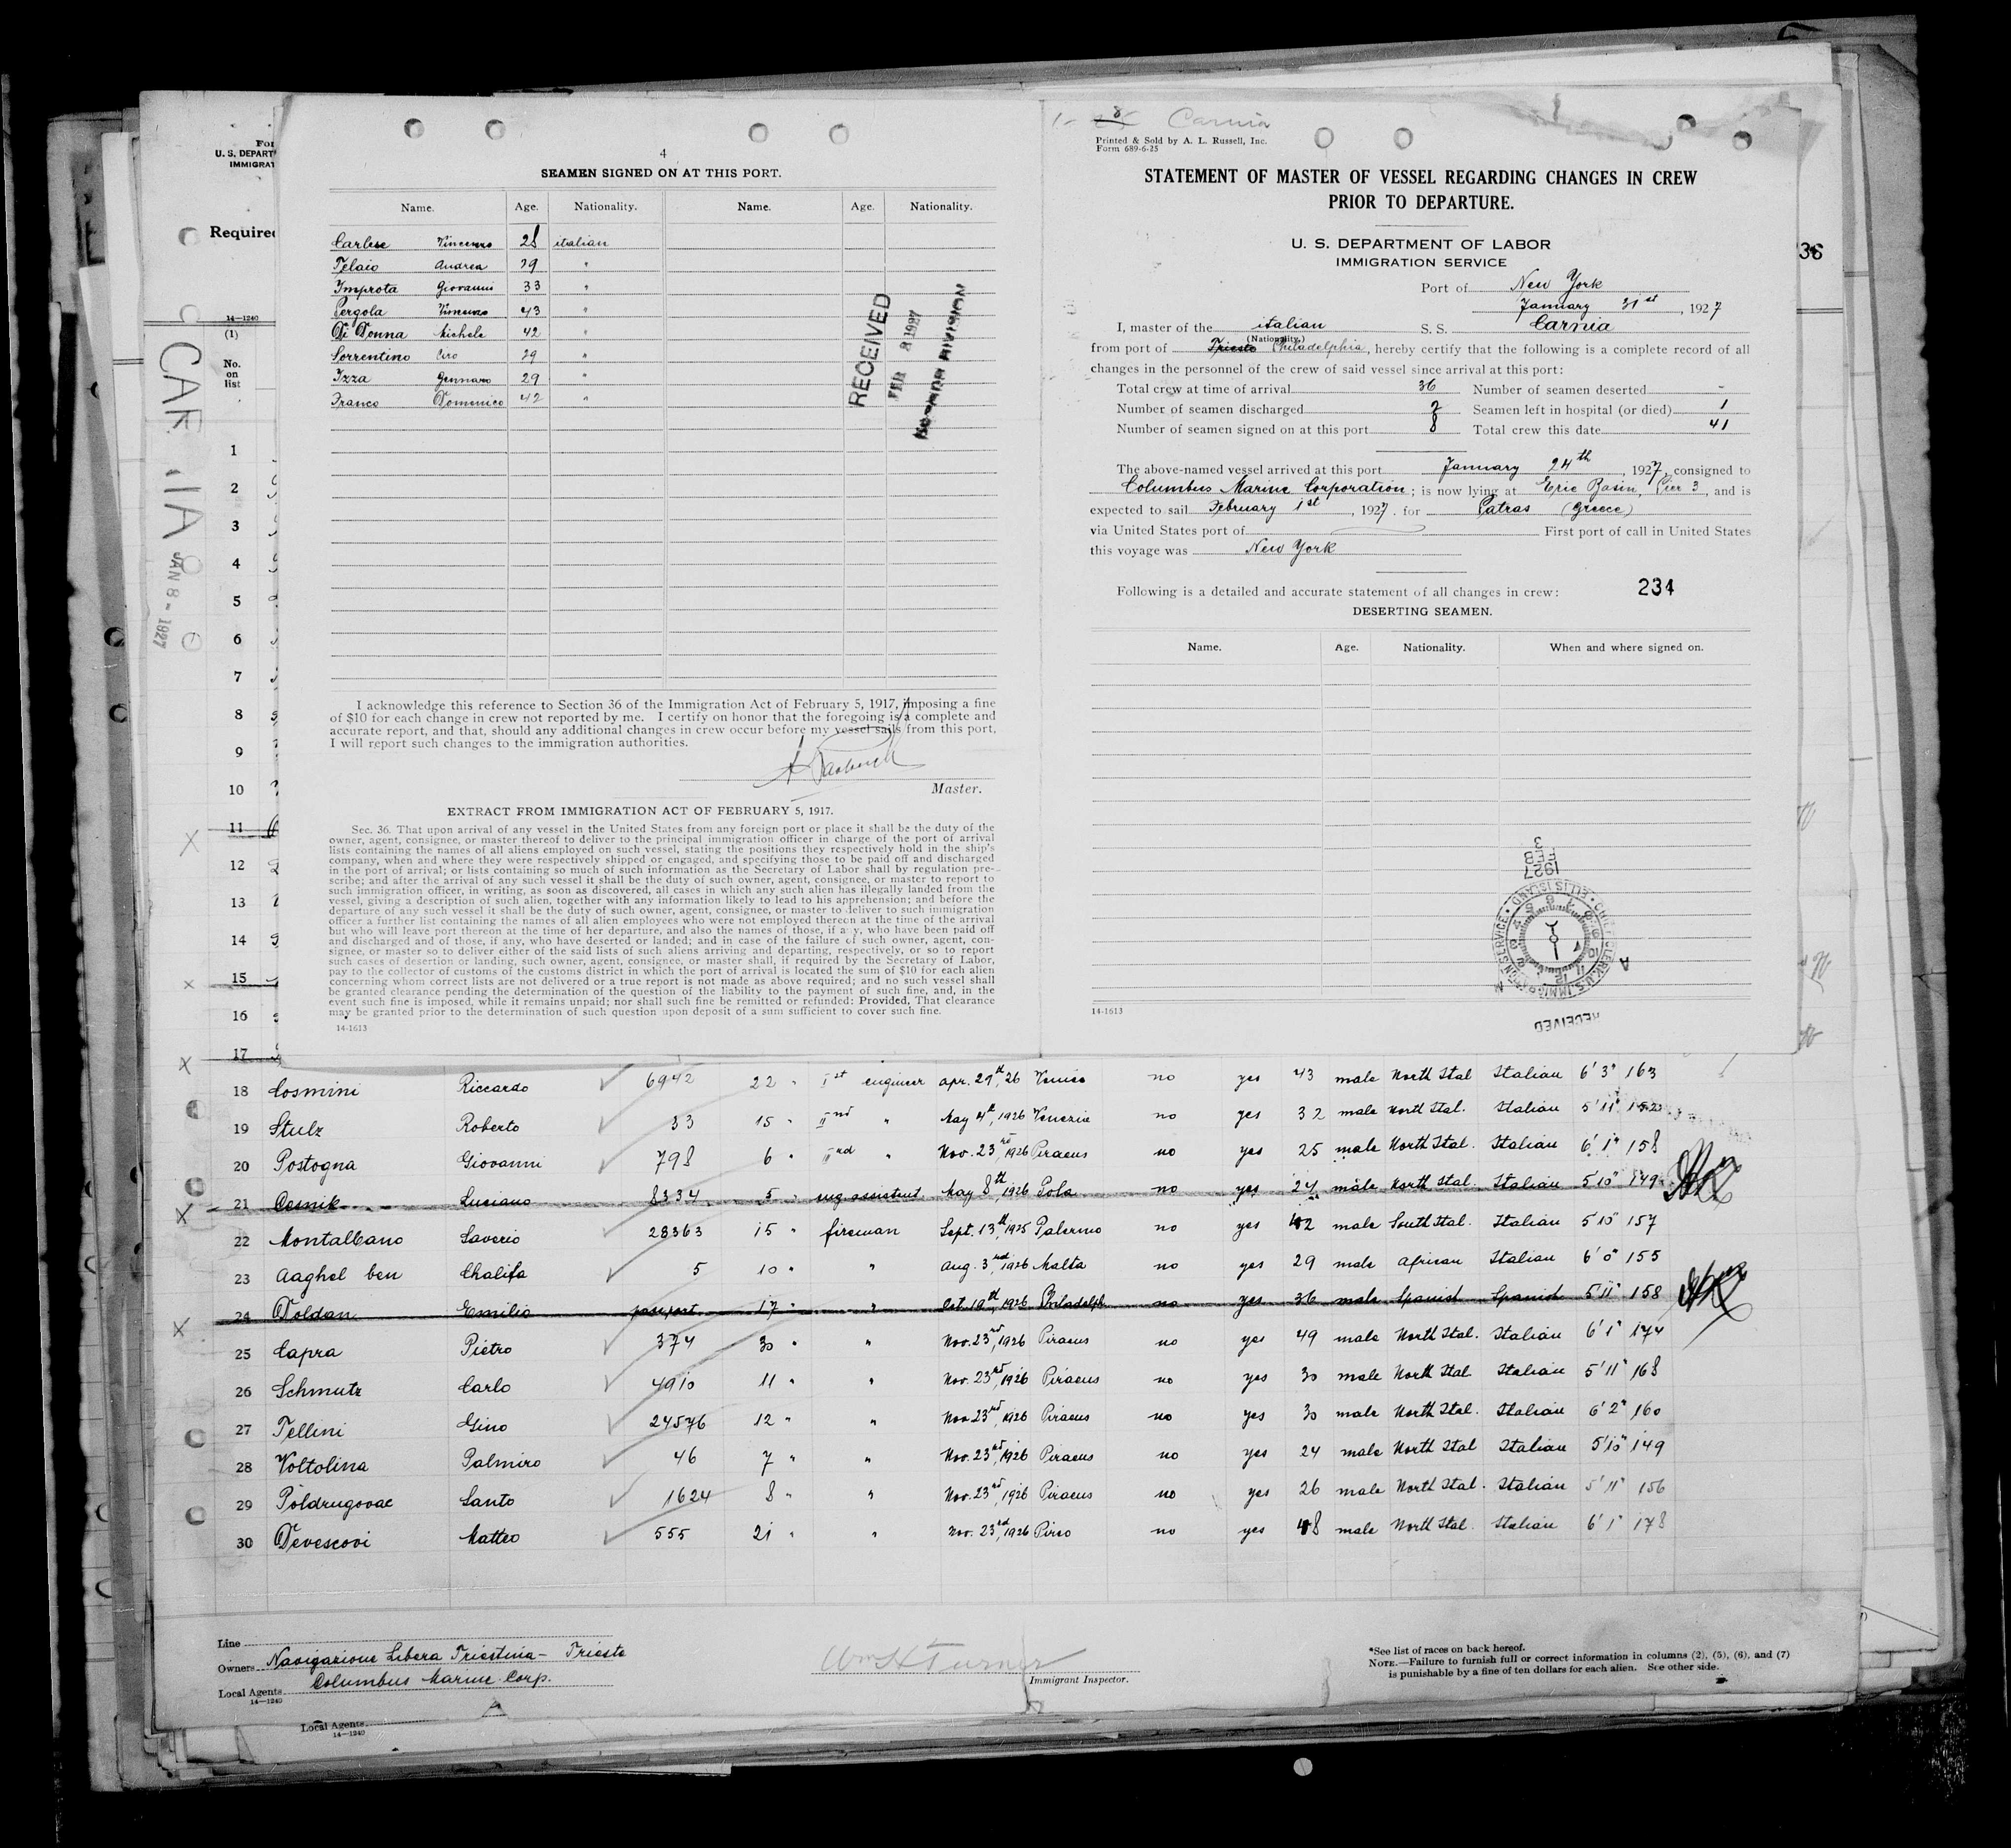 4
SEAMEN SIGNED ON AT THIS PORT.
Name. Age. Nationality. Name. Age. Nationality.
Carlese Vincenzo 28 italian
Telaio Andrea 29 "
Improta Giovanni 33 "
Pergola Vincenzo 43 "
Di Donna Michele 42 "
Sorrentino Ciro 29 "
Izza Gennaro 29 "
Franco Domenico 42 "
RECEIVED
FEB 8 1927
DIVISION
I acknowledge this reference to Section 36 of the Immigration Act of February 5, 1917, imposing a fine
of $10 for each change in crew not reported by me. I certify on honor that the foregoing is a complete and
accurate report, and that, should any additional changes in crew occur before my vessel sails from this port,
I will report such changes to the immigration authorities.
Master.
EXTRACT FROM IMMIGRATION ACT OF FEBRUARY 5, 1917.
Sec. 36. That upon arrival of any vessel in the United States from any foreign port or place it shall be the duty of the
owner, agent, consignee, or master thereof to deliver to the principal immigration officer in charge of the port of arrival
lists containing the names of all aliens employed on such vessel, stating the positions they respectively hold in the ship's
company, when and where they were respectively shipped or engaged, and specifying those to be paid off and discharged
in the port of arrival; or lists containing so much of such information as the Secretary of Labor shall by regulation pre-
scribe; and after the arrival of any such vessel it shall be the duty of such owner, agent, consignee, or master to report to
such immigration officer, in writing, as soon as discovered, all cases in which any such alien has illegally landed from the
vessel, giving a description of such alien, together with any information likely to lead to his apprehension; and before the
departure of any such vessel it shall be the duty of such owner, agent, consignee, or master to deliver to such immigration
officer a further list containing the names of all alien employees who were not employed thereon at the time of the arrival
but who will leave port thereon at the time of her departure, and also the names of those, if any, who have been paid off
and discharged and of those, if any, who have deserted or landed; and in case of the failure of such owner, agent, con-
signee, or master so to deliver either of the said lists of such aliens arriving and departing, respectively, or so to report
such cases of desertion or landing, such owner, agent, consignee, or master shall, if required by the Secretary of Labor,
pay to the collector of customs of the customs district in which the port of arrival is located the sum of $10 for each alien
concerning whom correct lists are not delivered or a true report is not made as above required; and no such vessel shall
be granted clearance pending the determination of the question of the liability to the payment of such fine, and, in the
event such fine is imposed, while it remains unpaid; nor shall such fine be remitted or refunded: Provided, That clearance
may be granted prior to the determination of such question upon deposit of a sum sufficient to cover such fine.
14-1613
Carnia
Printed & Sold by A. L. Russell, Inc.
Form 689-6-25
STATEMENT OF MASTER OF VESSEL REGARDING CHANGES IN CREW
PRIOR TO DEPARTURE.
U. S. DEPARTMENT OF LABOR
IMMIGRATION SERVICE
Port of New York
January 31st, 1927
I, master of the italian S. S. Carnia
(Nationality.)
from port of Trieste Philadelphia, hereby certify that the following is a complete record of all
changes in the personnel of the crew of said vessel since arrival at this port:
Total crew at time of arrival 36 Number of seamen deserted -
Number of seamen discharged 2 Seamen left in hospital (or died) 1
Number of seamen signed on at this port 8 Total crew this date 41
The above-named vessel arrived at this port January 24th, 1927, consigned to
Columbus Marine Corporation; is now lying at Erie Basin, Pier 3, and is
expected to sail February 1st, 1927. for Patras (Greece)
via United States port of First port of call in United States
this voyage was New York
Following is a detailed and accurate statement of all changes in crew: 234
DESERTING SEAMEN.
Name. Age. Nationality. When and where signed on.
1927
FEB
3
RECEIVED
14-1613
For
U. S. DEPART
IMMIGRAT
Required
14—1240
(1)
No.
on
list
CARNIA
JAN 8 - 1927
1
2
3
4
5
6
7
8
9
10
11
12
13
14
15
16
17
36
18 Cosmini Riccardo 6942 22 " Ist engineer apr. 29th, 26 Venice no yes 43 male North Ital Italian 6' 3" 163
19 Stulz Roberto 33 15 " IInd " May 4th, 1926 Venezia no yes 32 male North Ital. Italian 5'11" 152
20 Postogna Giovanni 798 6 " Nov. 23rd, 1926 Piraeus no yes 25 male North Ital. Italian 6' 1" 158
21 Cesnik Luciano 8334 5 " eng. assistent May 8th, 1926 Pola no yes 24 male North Ital. Italian 5'10" 149
22 Montalbano Saverio 28363 15 " fireman Sept. 13th, 1925 Palermo no yes 42 male South Ital. Italian 5'10" 157
23 Aaghel ben Chalifa 5 10 " " Aug. 3rd, 1926 Malta no yes 29 male African Italian 6' 0" 155
24 Doldan Emilio passport 17 " " Oct. 19th, 1926 Philadelph. no yes 36 male Spanish Spanish 5'11" 158
25 Capra Pietro 374 30 " " Nov. 23rd, 1926 Piraeus no yes 49 male North Ital. Italian 6' 1" 174
26 Schmutz Carlo 4910 11 " " Nov. 23rd, 1926 Piraeus no yes 30 male North Ital Italian 5'11" 168
27 Tellini Gino 24576 12 " " Nov 23rd, 1926 Piraeus no yes 30 male North Ital. Italian 6' 2" 160
28 Voltolina Palmiro 46 7 " " Nov. 23rd, 1926 Piraeus no yes 24 male North Ital Italian 5'10" 149
29 Poldrugovac Santo 1624 8 " " Nov. 23rd, 1926 Piraeus no yes 26 male North Ital. Italian 5'11" 156
30 Devescovi Matteo 555 21 " " Nov. 23rd, 1926 Pireo no yes 48 male North Ital. Italian 6' 1" 178
Line
Owners Navigazione Libera Triestina - Trieste
Local Agents Columbus Marine Corp.
14—1240
Wm H Turner
Immigrant Inspector.
*See list of races on back hereof.
NOTE.—Failure to furnish full or correct information in columns (2), (5), (6), and (7)
is punishable by a fine of ten dollars for each alien. See other side.
Local Agents
14—1240